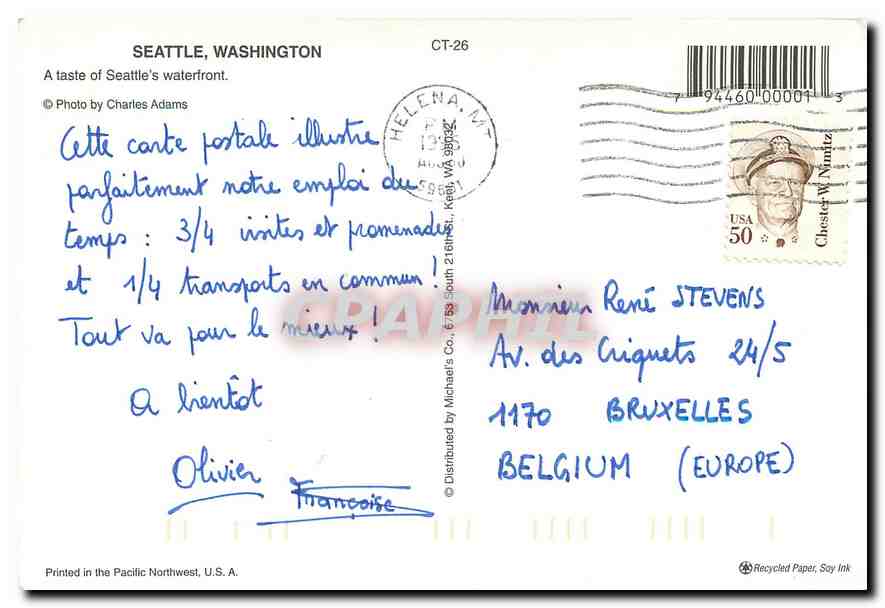 SEATTLE, WASHINGTON
A taste of Seattle's waterfront.
© Photo by Charles Adams
CT-26
7 94460 00001 3
HELENA, MT
USA
50
Chester W. Nimitz
Cette carte postale illustre
parfaitement notre emploi du
temps : 3/4 visites et promenades
et 1/4 transports en commun !
Tout va pour le mieux !
A bientôt
Olivier
Françoise
© Distributed by Michael's Co., 6753 South 216th St., Kent, WA 98032
CPAPHIL
Monsieur René STEVENS
Av. des Criquets 24/5
1170 BRUXELLES
BELGIUM (EUROPE)
Printed in the Pacific Northwest, U. S. A.
Recycled Paper, Soy Ink